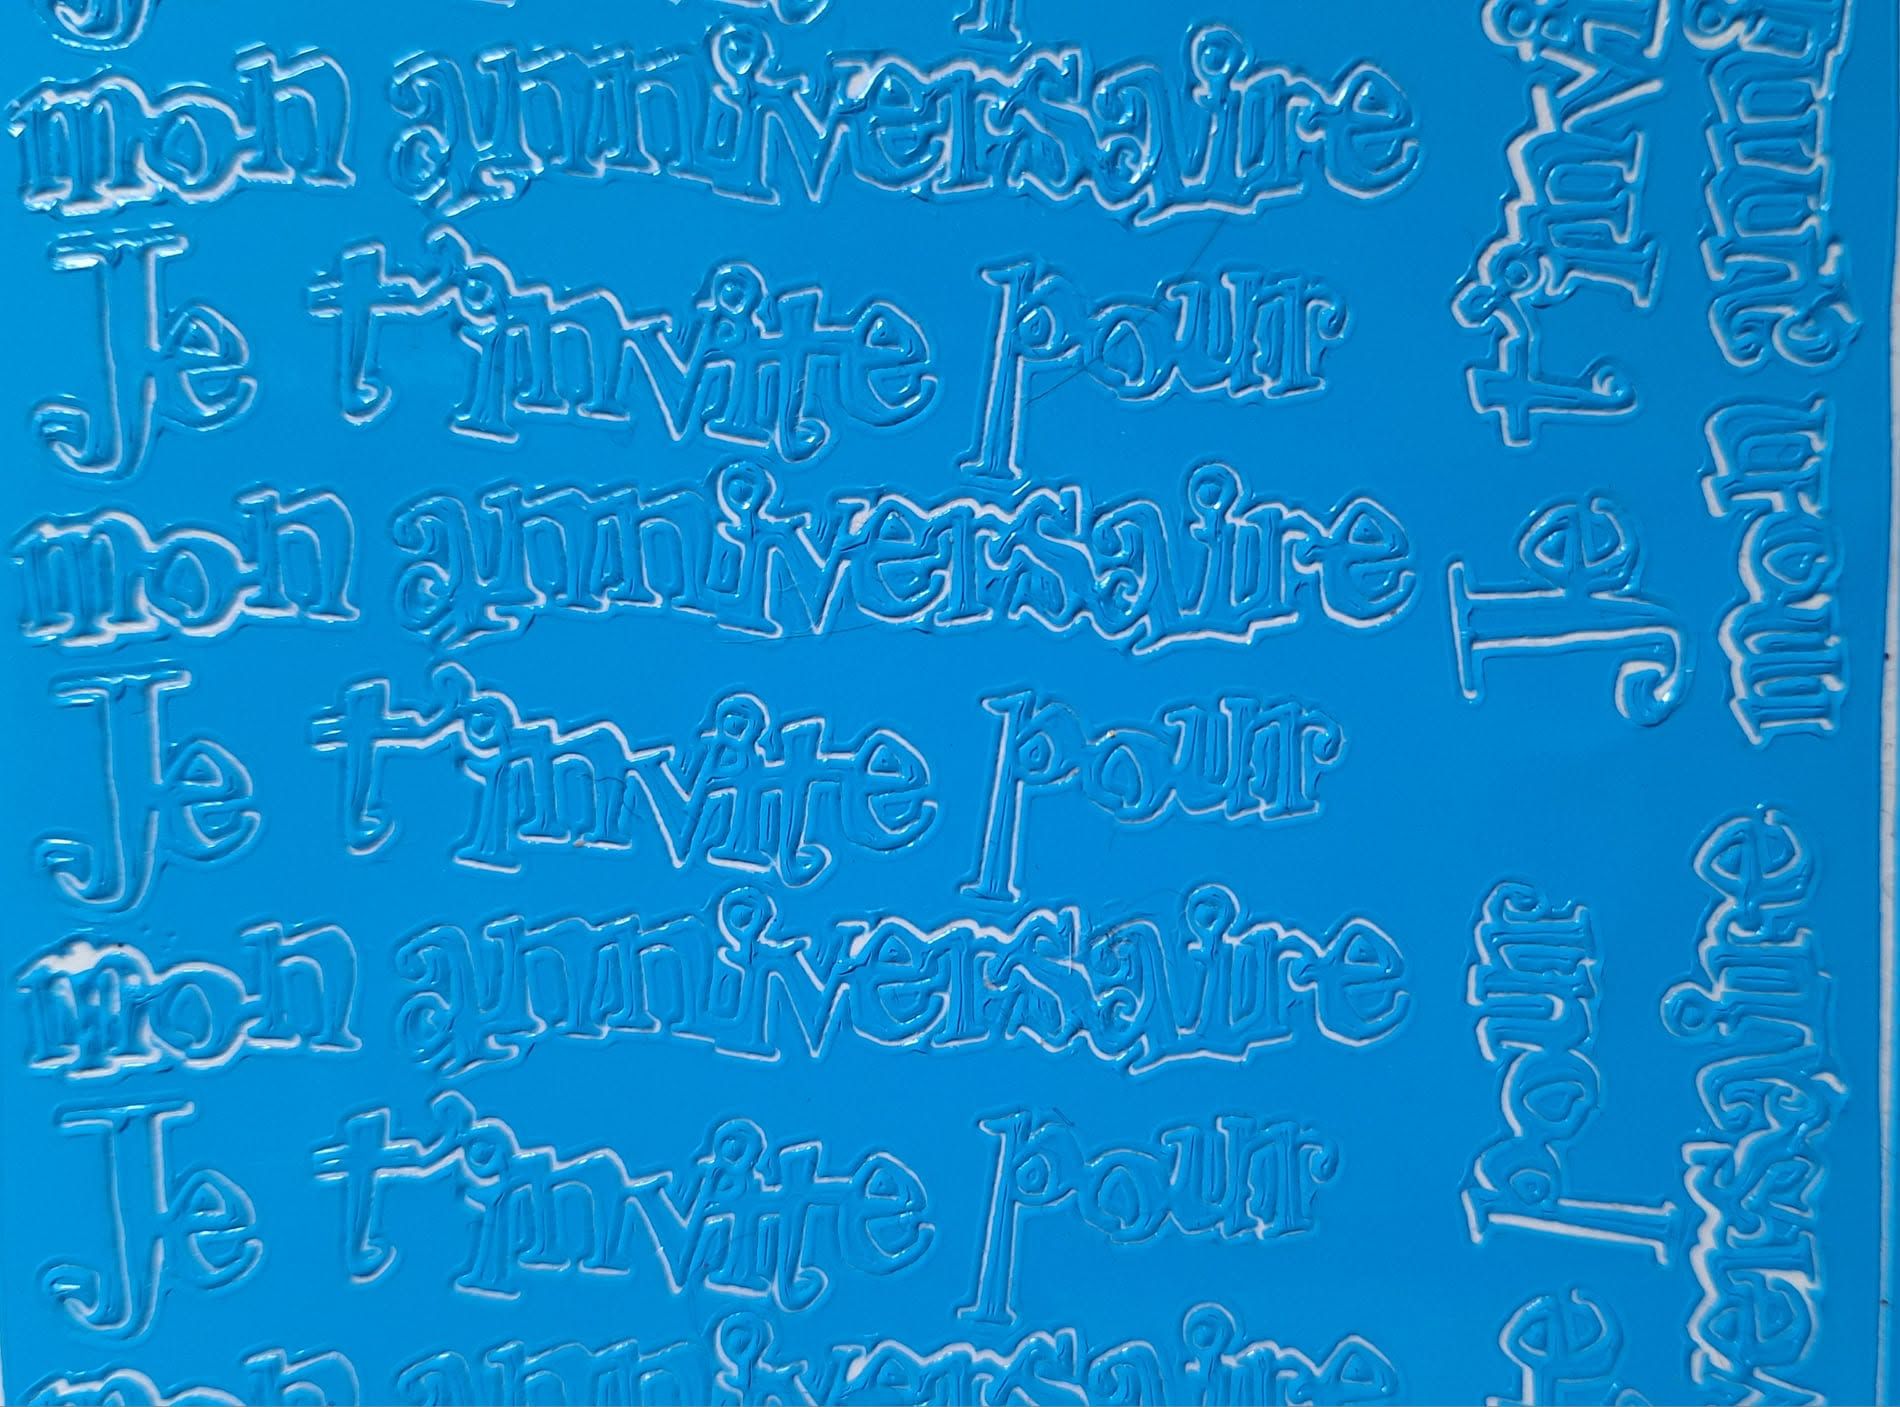 mon anniversaire
Je t'invite pour
mon anniversaire
Je t'invite pour
mon anniversaire
Je t'invite pour
mon anniversaire
Je t'invi
mon anni
pour
versaire